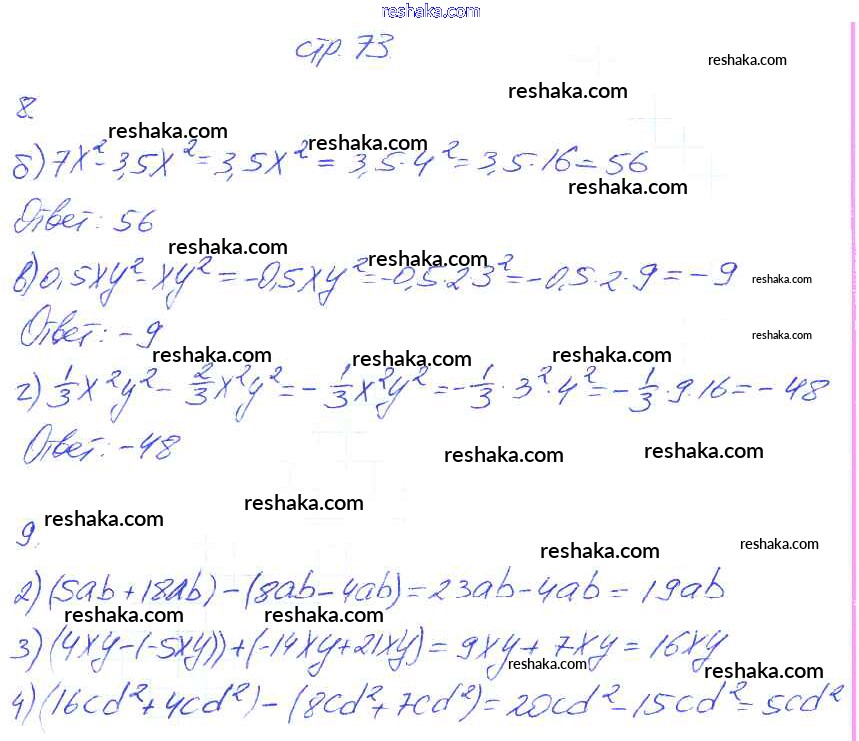 reshaka.com
стр. 73.
reshaka.com
reshaka.com
8.
reshaka.com reshaka.com
б) 7x² - 3,5x² = 3,5x² = 3,5·4² = 3,5·16 = 56
reshaka.com
Ответ: 56
reshaka.com reshaka.com
в) 0,5xy² - xy² = -0,5xy² = -0,5·2·3² = -0,5·2·9 = -9
reshaka.com
Ответ: -9
reshaka.com
reshaka.com reshaka.com reshaka.com
г) 1/3 x²y² - 2/3 x²y² = - 1/3 x²y² = - 1/3 · 3²·4² = - 1/3 · 9·16 = -48
Ответ: -48
reshaka.com reshaka.com
reshaka.com
reshaka.com
9.
reshaka.com reshaka.com
2) (5ab + 18ab) - (8ab - 4ab) = 23ab - 4ab = 19ab
reshaka.com reshaka.com
3) (4xy - (-5xy)) + (-14xy + 21xy) = 9xy + 7xy = 16xy
reshaka.com reshaka.com
4) (16cd² + 4cd²) - (8cd² + 7cd²) = 20cd² - 15cd² = 5cd²